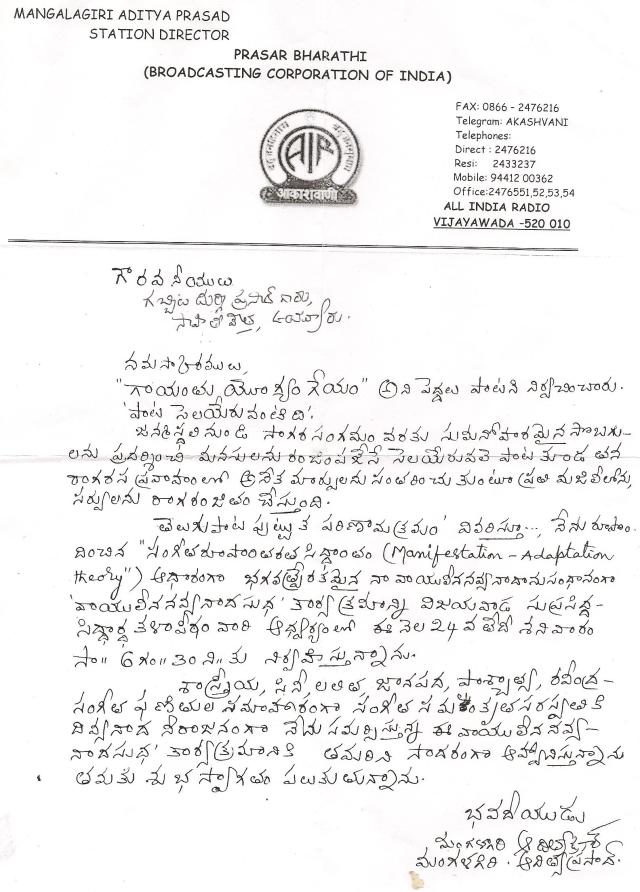 MANGALAGIRI ADITYA PRASAD
STATION DIRECTOR
PRASAR BHARATHI
(BROADCASTING CORPORATION OF INDIA)
FAX: 0866 - 2476216
Telegram: AKASHVANI
Telephones:
Direct : 2476216
Resi: 2433237
Mobile: 94412 00362
Office:2476551,52,53,54
ALL INDIA RADIO
VIJAYAWADA -520 010
AIR
आकाशवाणी
గౌరవనీయులు
గబ్బిట దుర్గాప్రసాద్ గారు,
ఉయ్యూరు.
నమస్కారములు,
గేయం" అని పెద్దలు పాటని నిర్వచించారు.
'పాట సెలయేరు వంటిది'.
జన్మస్థలి నుండి సాగర సంగమం వరకు సుమనోహరమైన సొబగు-
లను ప్రదర్శించి మనసులను రంజింపజేసే సెలయేరువలె పాట కూడ తన
రాగరస ప్రవాహంలో అనేక మార్పులను సంతరించుకుంటూ ప్రతి మజిలీలోను,
సర్వులను రాగరంజితం చేస్తుంది.
తెలుగుపాట పుట్టుక పరిణామక్రమం' వివరిస్తూ..., నేను రూపొం-
దించిన "సంగీత రూపాంతరీకరణ సిద్ధాంతం (Manifestation - Adaptation
theory") ఆధారంగా భగవత్ప్రేరితమైన నా వాయులీన నవ్యనాదానుసంధానంగా
'వాయులీన నవ్యనాదసుధ' కార్యక్రమాన్ని విజయవాడ సుప్రసిద్ధ-
సిద్ధార్థ కళాపీఠం వారి ఆధ్వర్యంలో ఈ నెల 24 వ తేదీ శనివారం
సా॥ 6 గం॥ 30 ని॥ కు నిర్వహిస్తున్నాను.
శాస్త్రీయ, సినీ, లలిత, జానపద, పాశ్చాత్య, రవీంద్ర-
సంగీత ఫణితుల సమాహారంగా సంగీత సరస్వతికి
దివ్యనాద నీరాజనంగా నేను సమర్పిస్తున్న ఈ వాయులీన నవ్య-
నాదసుధ' కార్యక్రమానికి తమరిని సాదరంగా ఆహ్వానిస్తున్నాను
తమకు శుభ స్వాగతం పలుకుతున్నాను.
భవదీయుడు
మంగళగిరి ఆదిత్యప్రసాద్
మంగళగిరి . ఆదిత్యప్రసాద్.